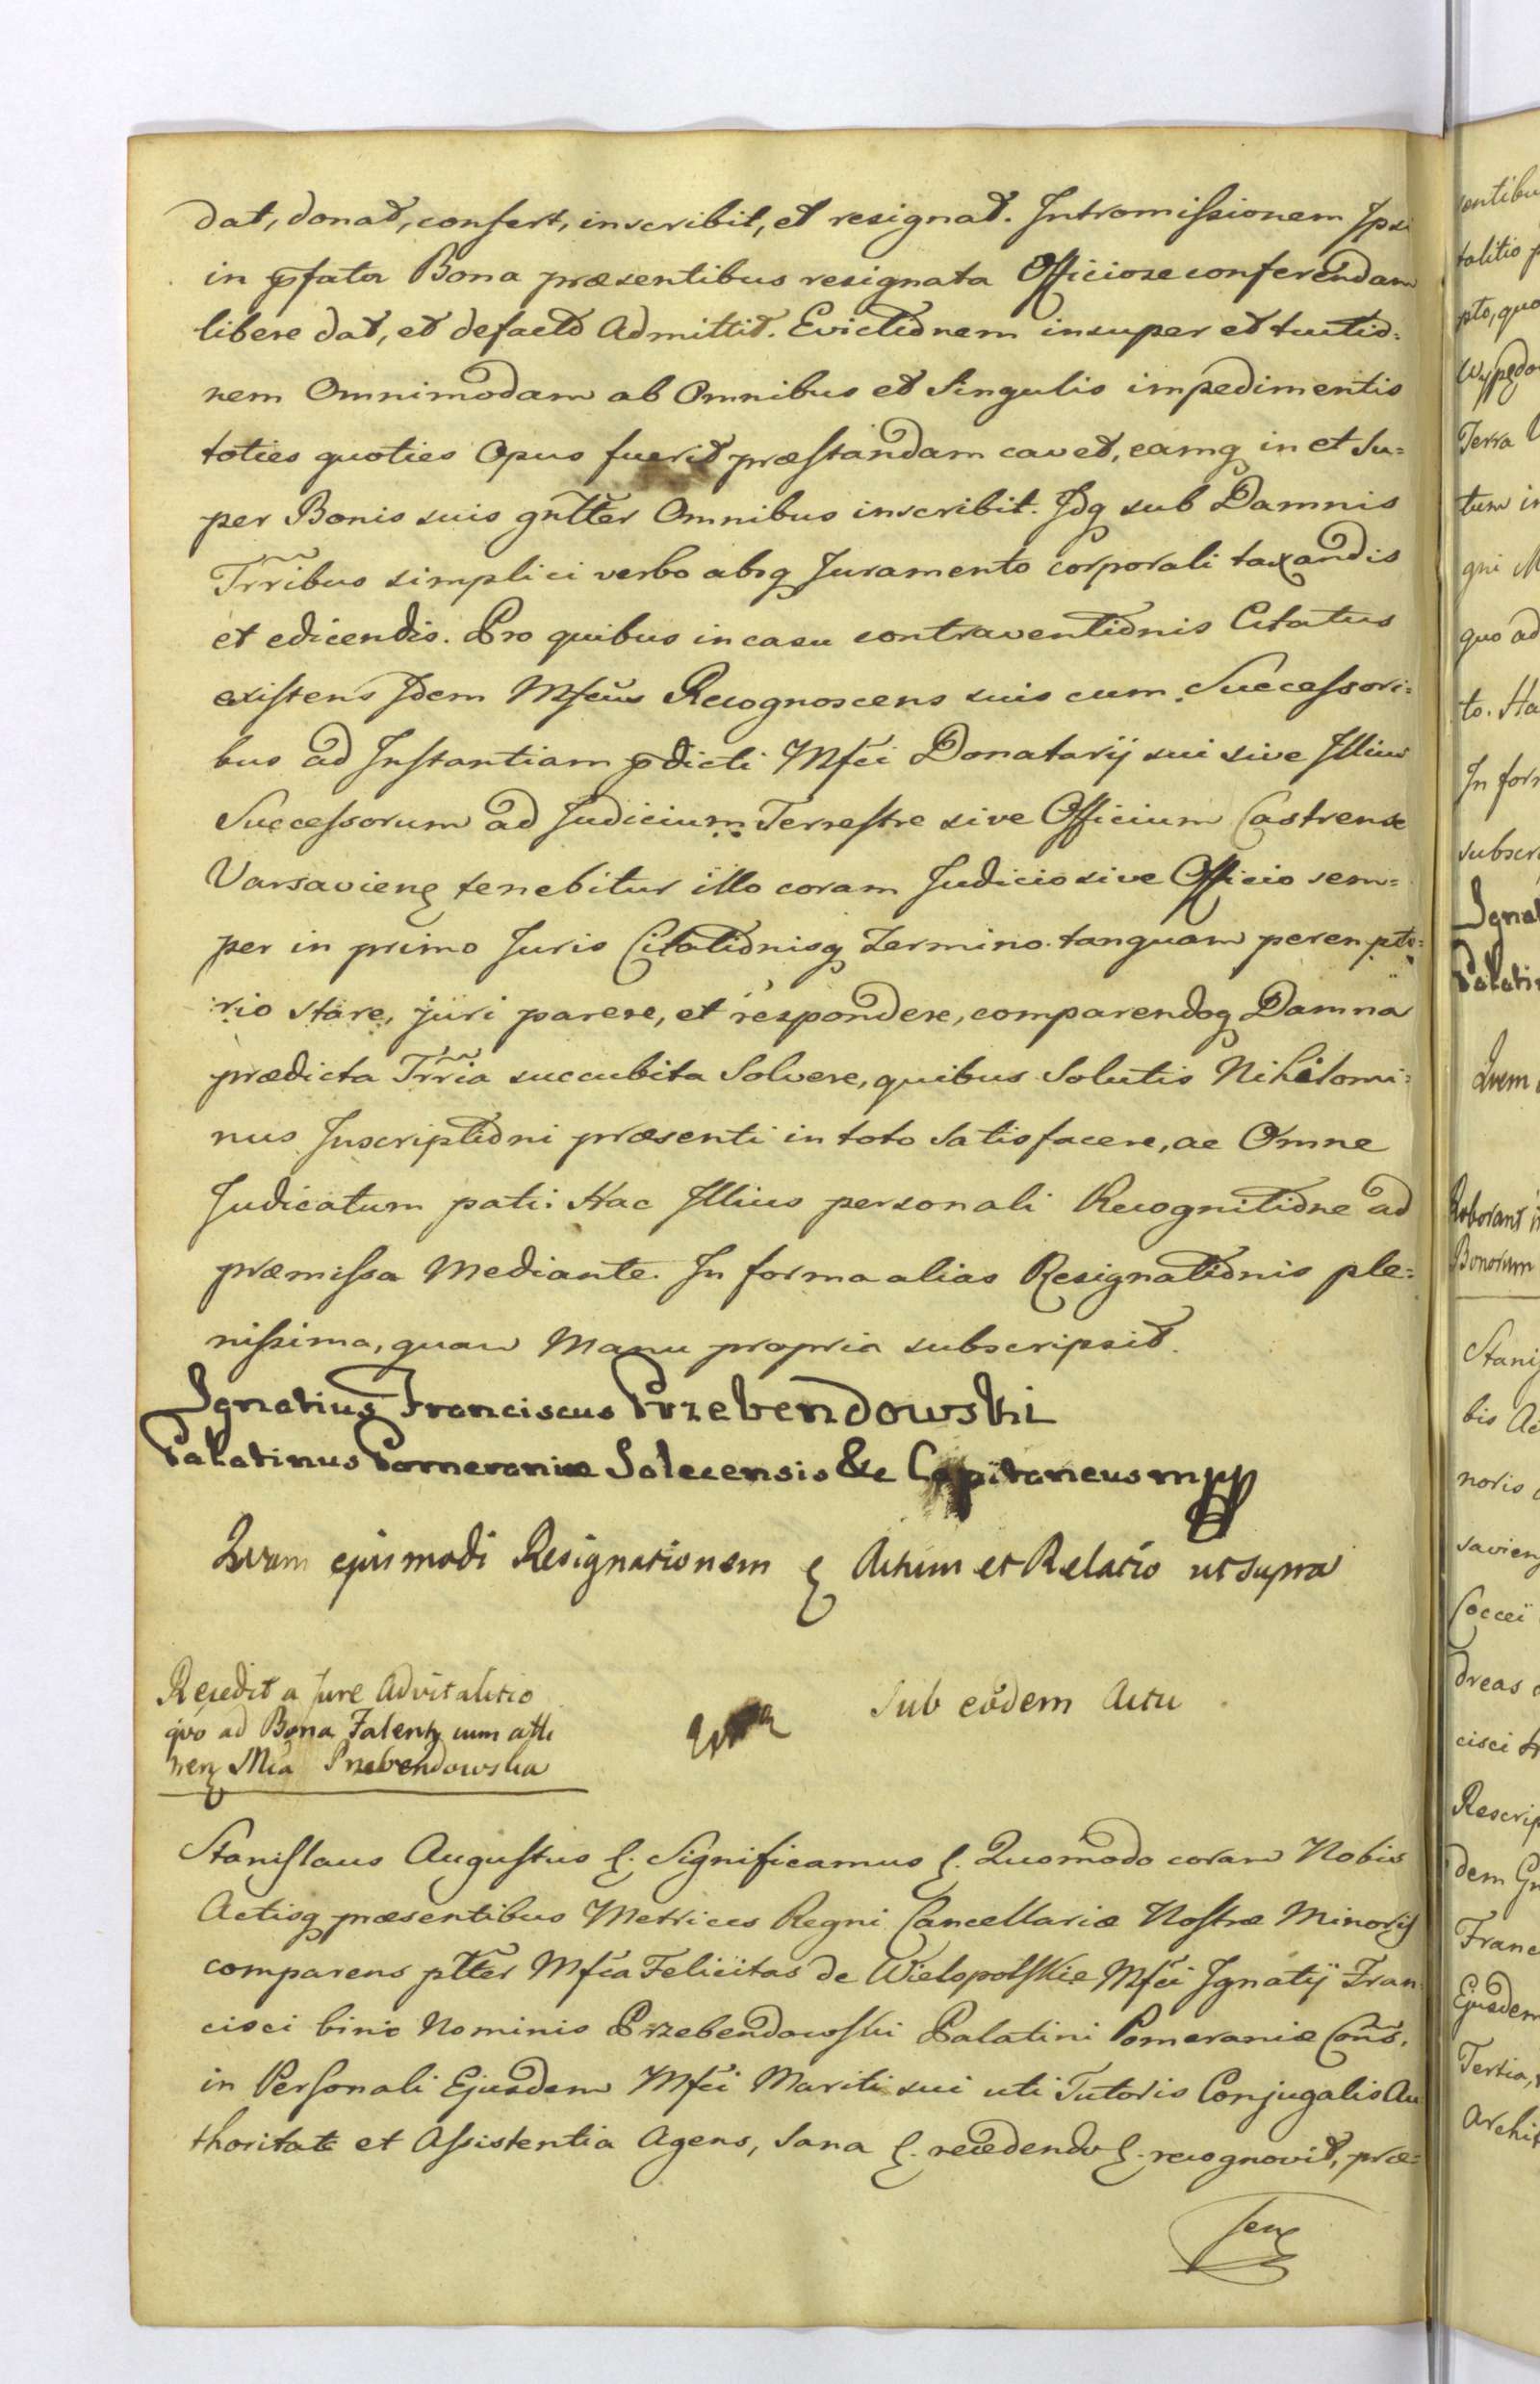 dat, donat, confert, inscribit, et resignat. Intromissionem Ipsi
in p̄fata Bona præsentibus resignata Officiose conferendam
libere dat, et defacto Admittit. Evictionem insuper et tuitio=
nem Omnimodam ab Omnibus et Singulis impedimentis
toties quoties Opus fuerit præstandam cavet, eamq in et Su=
per Bonis suis gñtter Omnibus inscribit. Idq sub Damnis
Trr̃ibus simplici verbo absq Juramento corporali taxandis
et edicendis. Pro quibus in casu contraventionis Citatus
existens Idem Mfcus Recognoscens suis cum Successori=
bus ad Instantiam p̄dicti Mfci Donatarij sui sive Illius
Successorum ad Judicium Terrestre sive Officium Castrense
Varsavienę tenebitur illo coram Judicio sive Officio sem=
per in primo Juris Citationisq Termino tanquam perempto=
rio stare, juri parere, et respondere, comparendoq Damna
prædicta Trr̃ia succubita Solvere, quibus Solutis Nihilomi=
nus Inscriptioni præsenti in toto Satisfacere, ac Omne
Judicatum pati: Hac Illius personali Recognitione ad
præmissa Mediante. In forma alias Resignationis ple=
nissima, quam Manu propria subscripsit.
Ignatius Franciscus Przebendowski
Palatinus Pomeraniæ Solecensis &c Capitaneus mpp
Quam ejusmodi Resignationem ę Actum et Relatio ut supra
Recedit a Jure Advitalitio
quo ad Bona Falenty cum atti
nenę Mfca Przebendowska
Sub eodem Actu
Stanislaus Augustus ę. Significamus ę. Quomodo coram Nobis
Actisq præsentibus Metrices Regni Cancellariæ Nostræ Minoris
comparens pltter Mfca Felicitas de Wielopolskie Mfci Ignatij Fran
cisci binio Nominis Przebendowski Palatini Pomeraniæ Cons.
in Personali Ejusdem Mfci Mariti sui uti Tutoris Conjugalis Au
thoritate et Assistentia Agens, Sana ę. recedendo ę. recognovit, præ=
sen
entibu
talitio p
pto, quo
Wypędo
Terra
tum in
gni M
quo ad
to. Ha
In for
subscr
Ignat
Palati
Quem
Roborant i
Bonorum
Stanis
bis Ac
noris
savienę
Coccei
dreas
cisci
Rescrip
dem Gn
Franc
Ejusdem
Tertia,
Archit